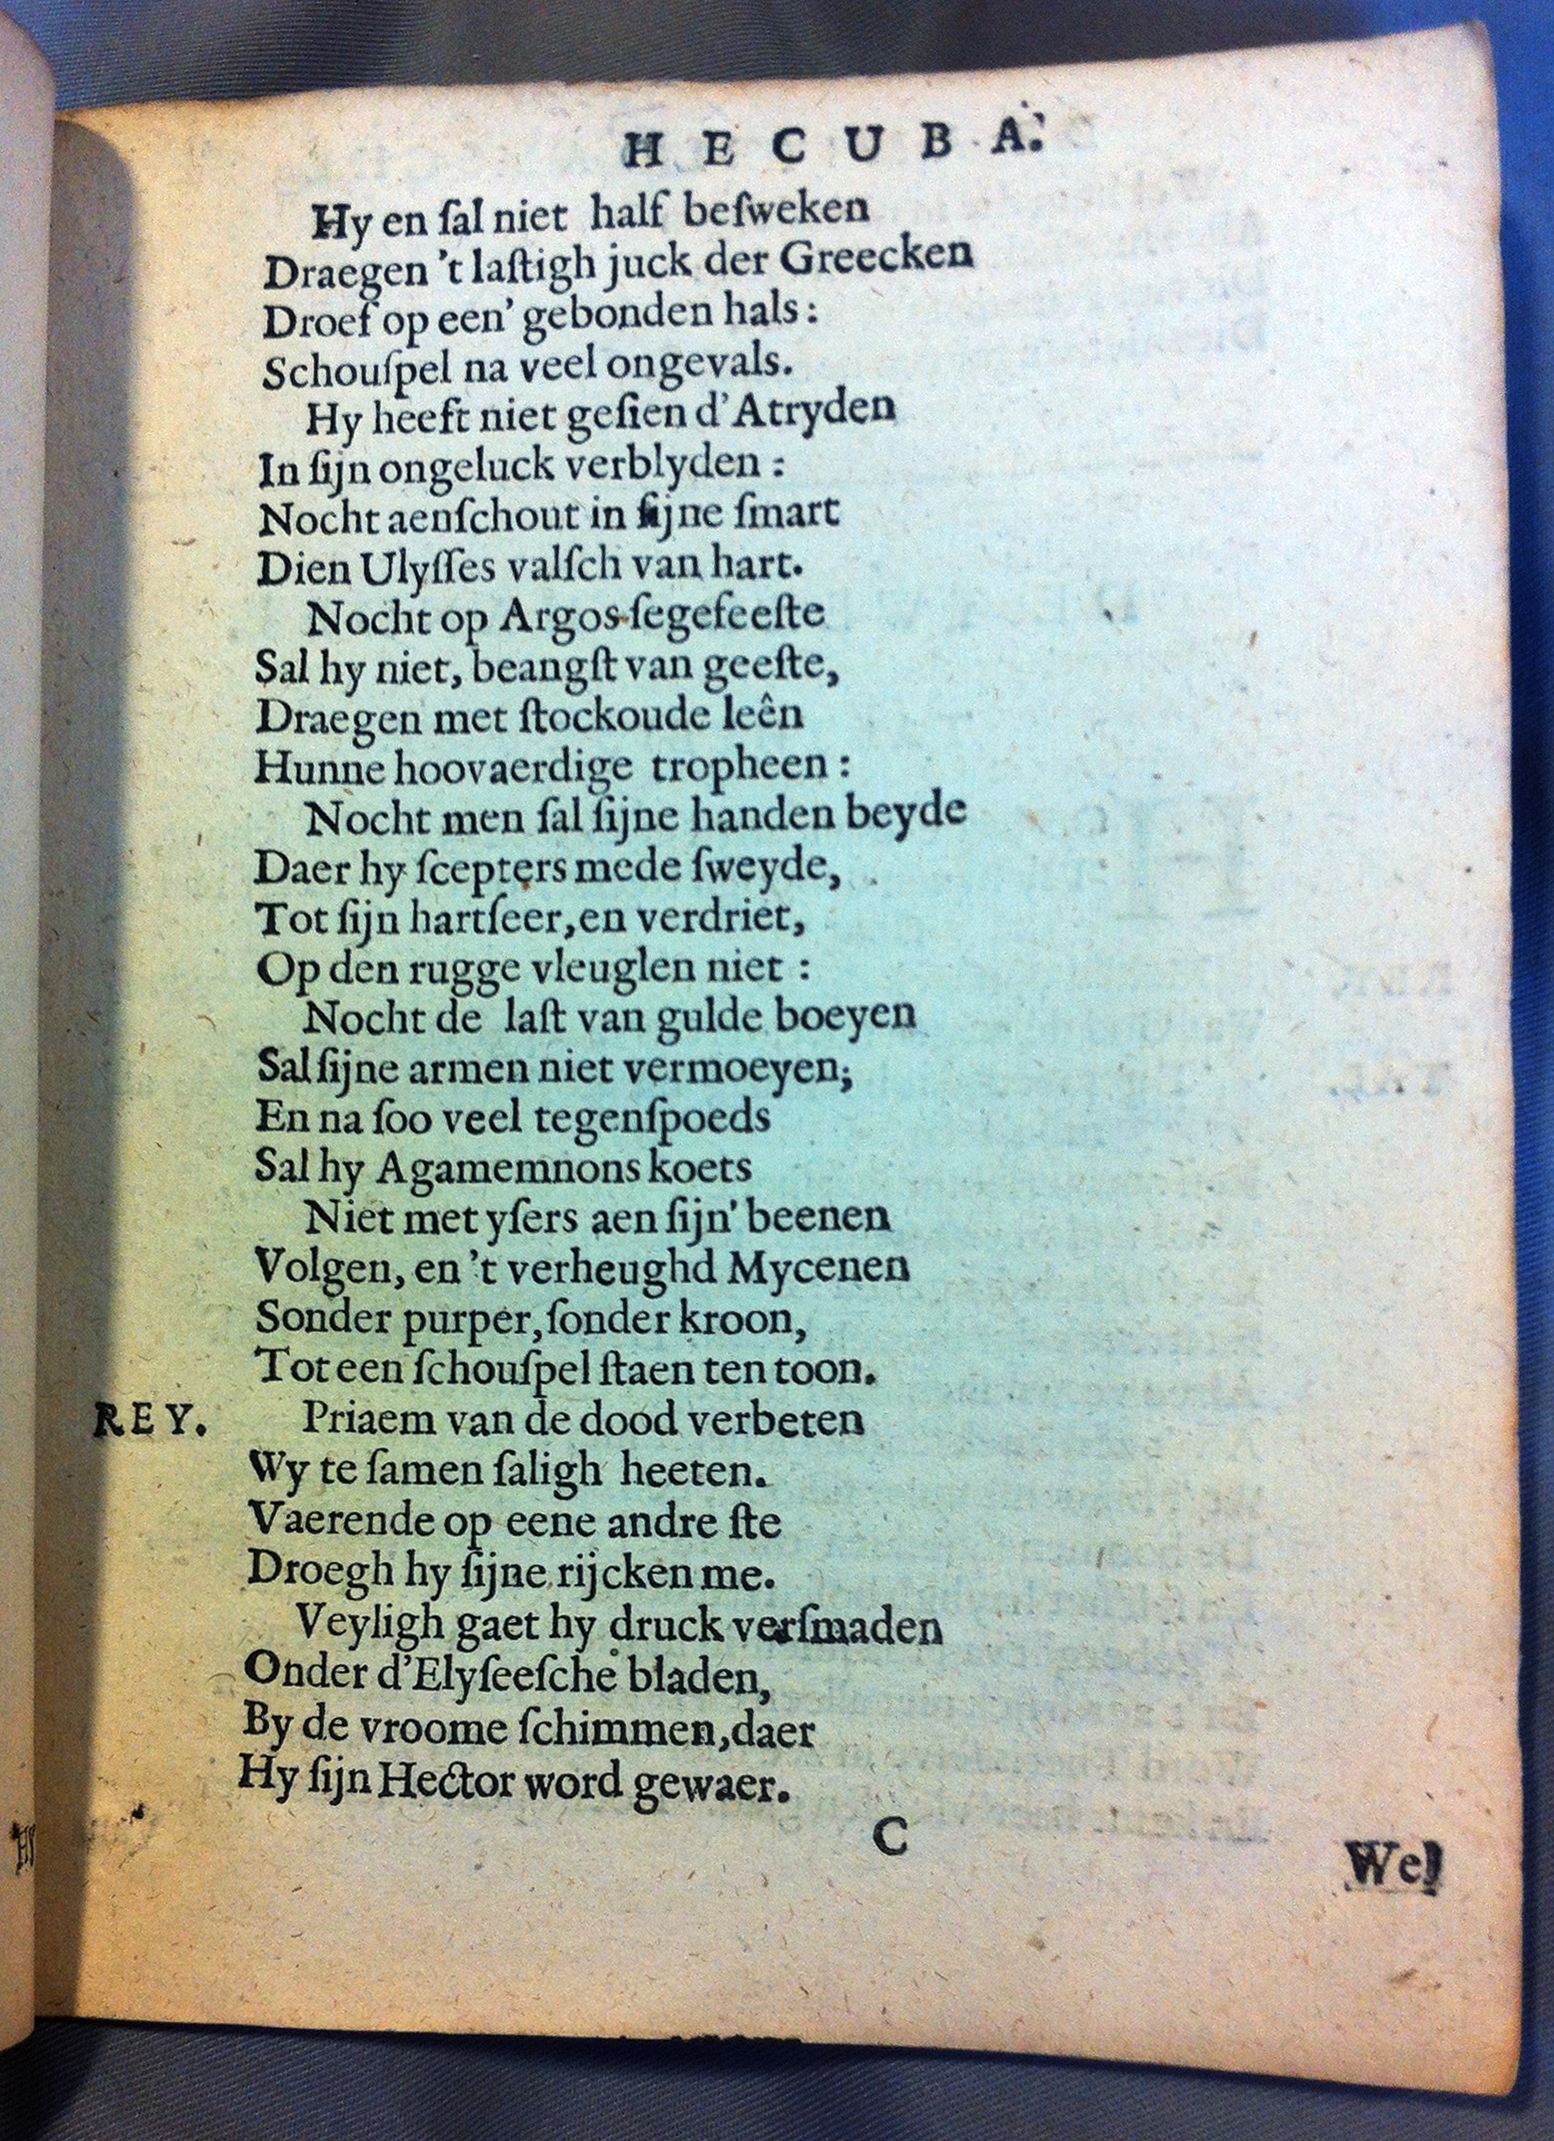 HECUBA.
Hy en ſal niet half beſweken
Draegen 't laſtigh juck der Greecken
Droef op een' gebonden hals:
Schouſpel na veel ongevals.
Hy heeft niet geſien d'Atryden
In ſijn ongeluck verblyden:
Nocht aenſchout in ſijne ſmart
Dien Ulyſſes valſch van hart.
Nocht op Argos ſegefeeſte
Sal hy niet, beangſt van geeſte,
Draegen met ſtockoude leên
Hunne hoovaerdige tropheen:
Nocht men ſal ſijne handen beyde
Daer hy ſcepters mede ſweyde,
Tot ſijn hartſeer, en verdriet,
Op den rugge vleuglen niet:
Nocht de laſt van gulde boeyen
Sal ſijne armen niet vermoeyen;
En na ſoo veel tegenſpoeds
Sal hy Agamemnons koets
Niet met yſers aen ſijn' beenen
Volgen, en 't verheughd Mycenen
Sonder purper, ſonder kroon,
Tot een ſchouſpel ſtaen ten toon.
REY. Priaem van de dood verbeten
Wy te ſamen ſaligh heeten.
Vaerende op eene andre ſte
Droegh hy ſijne rijcken me.
Veyligh gaet hy druck verſmaden
Onder d'Elyſeeſche bladen,
By de vroome ſchimmen, daer
Hy ſijn Hector word gewaer.
C
Wel